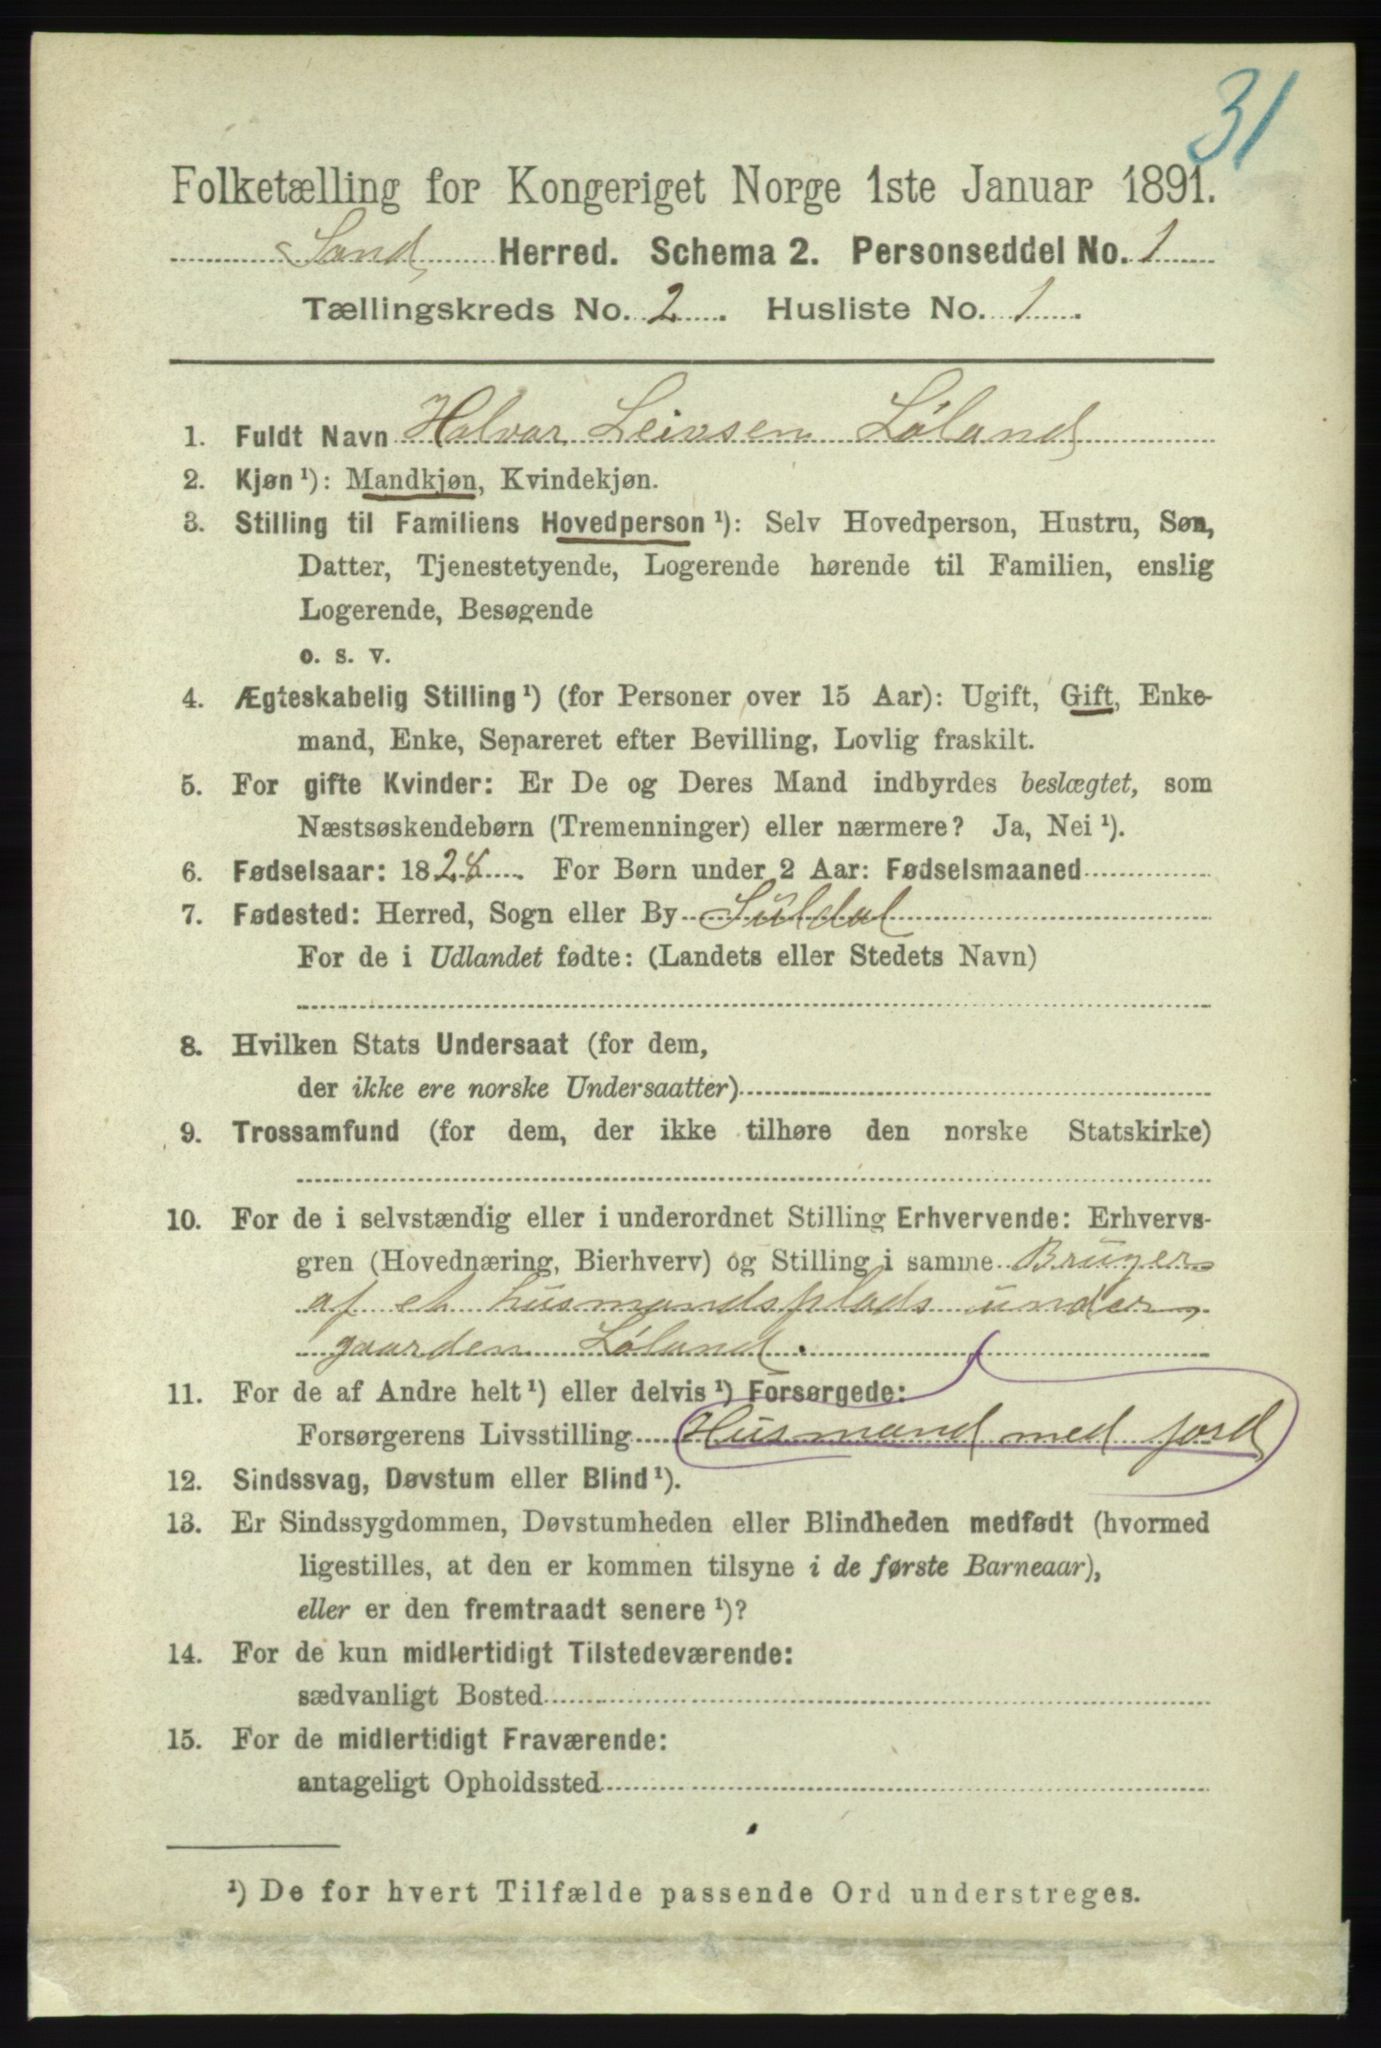 31
Folketælling for Kongeriget Norge 1ste Januar 1891.
Sand Herred. Schema 2. Personseddel No. 1
Tællingskreds No. 2. Husliste No. 1.
1. Fuldt Navn Halvar Leivsen Løland
2. Kjøn ¹): Mandkjøn, Kvindekjøn.
3. Stilling til Familiens Hovedperson ¹): Selv Hovedperson, Hustru, Søn,
Datter, Tjenestetyende, Logerende hørende til Familien, enslig
Logerende, Besøgende
o. s. v.
4. Ægteskabelig Stilling ¹) (for Personer over 15 Aar): Ugift, Gift, Enke-
mand, Enke, Separeret efter Bevilling, Lovlig fraskilt.
5. For gifte Kvinder: Er De og Deres Mand indbyrdes beslægtet, som
Næstsøskendebørn (Tremenninger) eller nærmere? Ja, Nei ¹).
6. Fødselsaar: 1828. For Børn under 2 Aar: Fødselsmaaned
7. Fødested: Herred, Sogn eller By Suldal
For de i Udlandet fødte: (Landets eller Stedets Navn)
8. Hvilken Stats Undersaat (for dem,
der ikke ere norske Undersaatter)
9. Trossamfund (for dem, der ikke tilhøre den norske Statskirke)
10. For de i selvstændig eller i underordnet Stilling Erhvervende: Erhvervs-
gren (Hovednæring, Bierhverv) og Stilling i samme Bruger
af et husmandsplads under
gaarden Løland.
11. For de af Andre helt ¹) eller delvis ¹) Forsørgede:
Forsørgerens Livsstilling Husmand med jord
12. Sindssvag, Døvstum eller Blind ¹).
13. Er Sindssygdommen, Døvstumheden eller Blindheden medfødt (hvormed
ligestilles, at den er kommen tilsyne i de første Barneaar),
eller er den fremtraadt senere ¹)?
14. For de kun midlertidigt Tilstedeværende:
sædvanligt Bosted
15. For de midlertidigt Fraværende:
antageligt Opholdssted
¹) De for hvert Tilfælde passende Ord understreges.